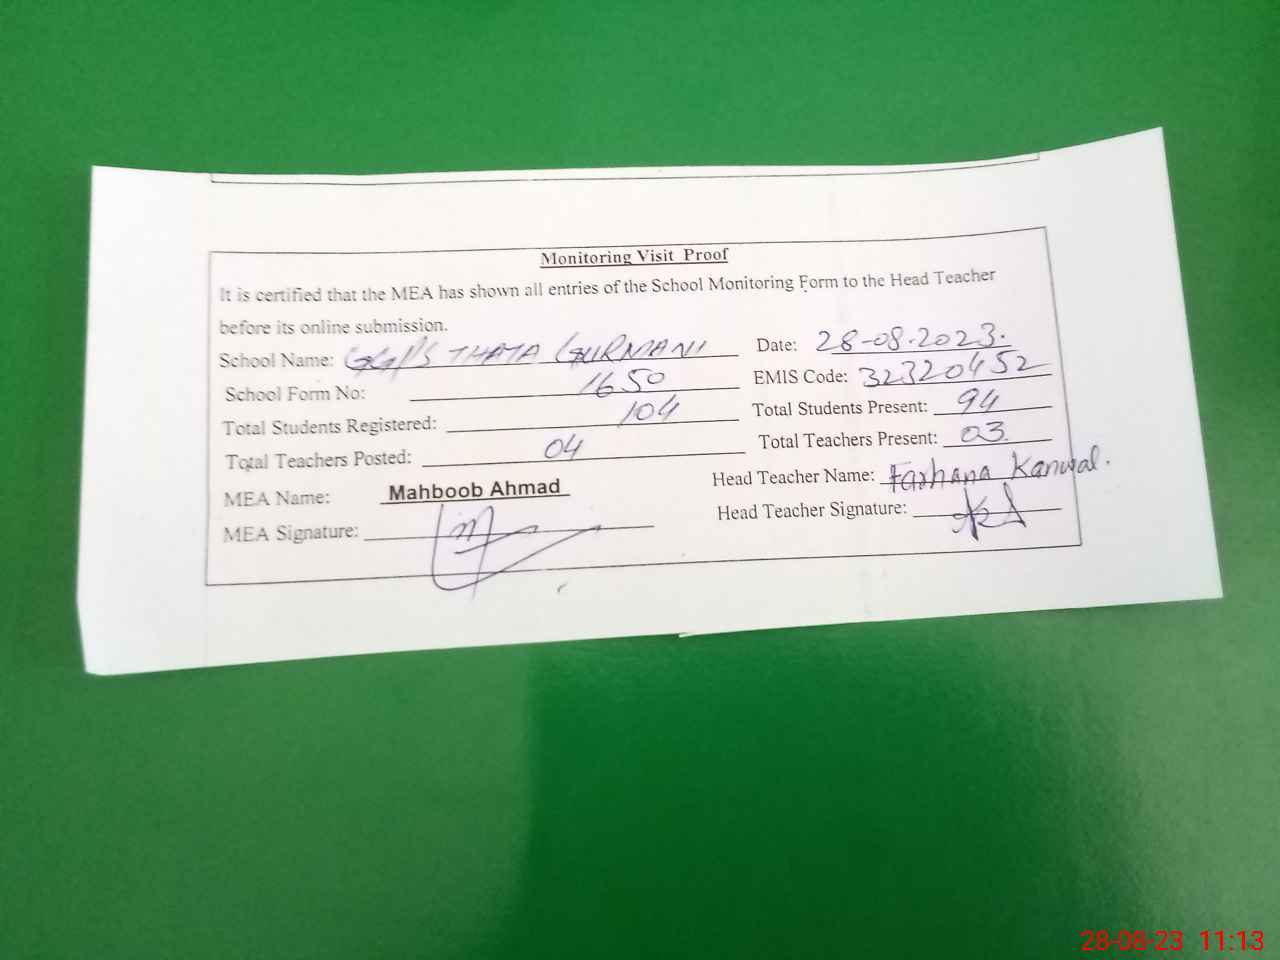 Monitoring Visit Proof
It is certified that the MEA has shown all entries of the School Monitoring Form to the Head Teacher
before its online submission.
School Name: GGPS THATA GURMANI Date: 28-08-2023.
School Form No: 1650 EMIS Code: 32320452
Total Students Registered: 104 Total Students Present: 94
Total Teachers Posted: 04 Total Teachers Present: 03
MEA Name: Mahboob Ahmad Head Teacher Name: Farhana Kanwal.
MEA Signature: Head Teacher Signature:
28-08-23 11:13